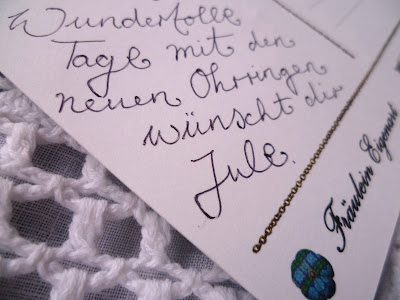 Wundervolle
Tage mit den
neuen Ohrringen
wünscht dir
Jule.
Fräulein Eigenart